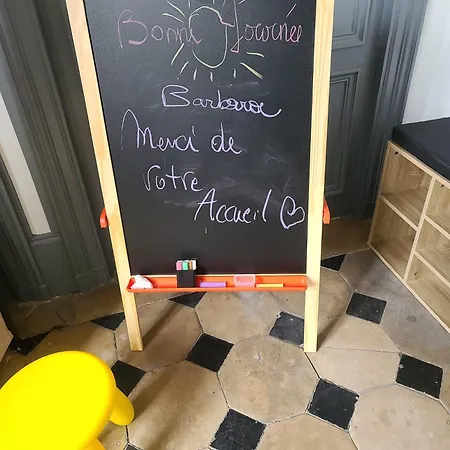 Bonne Journée
Barbara
Merci de
Votre
Accueil